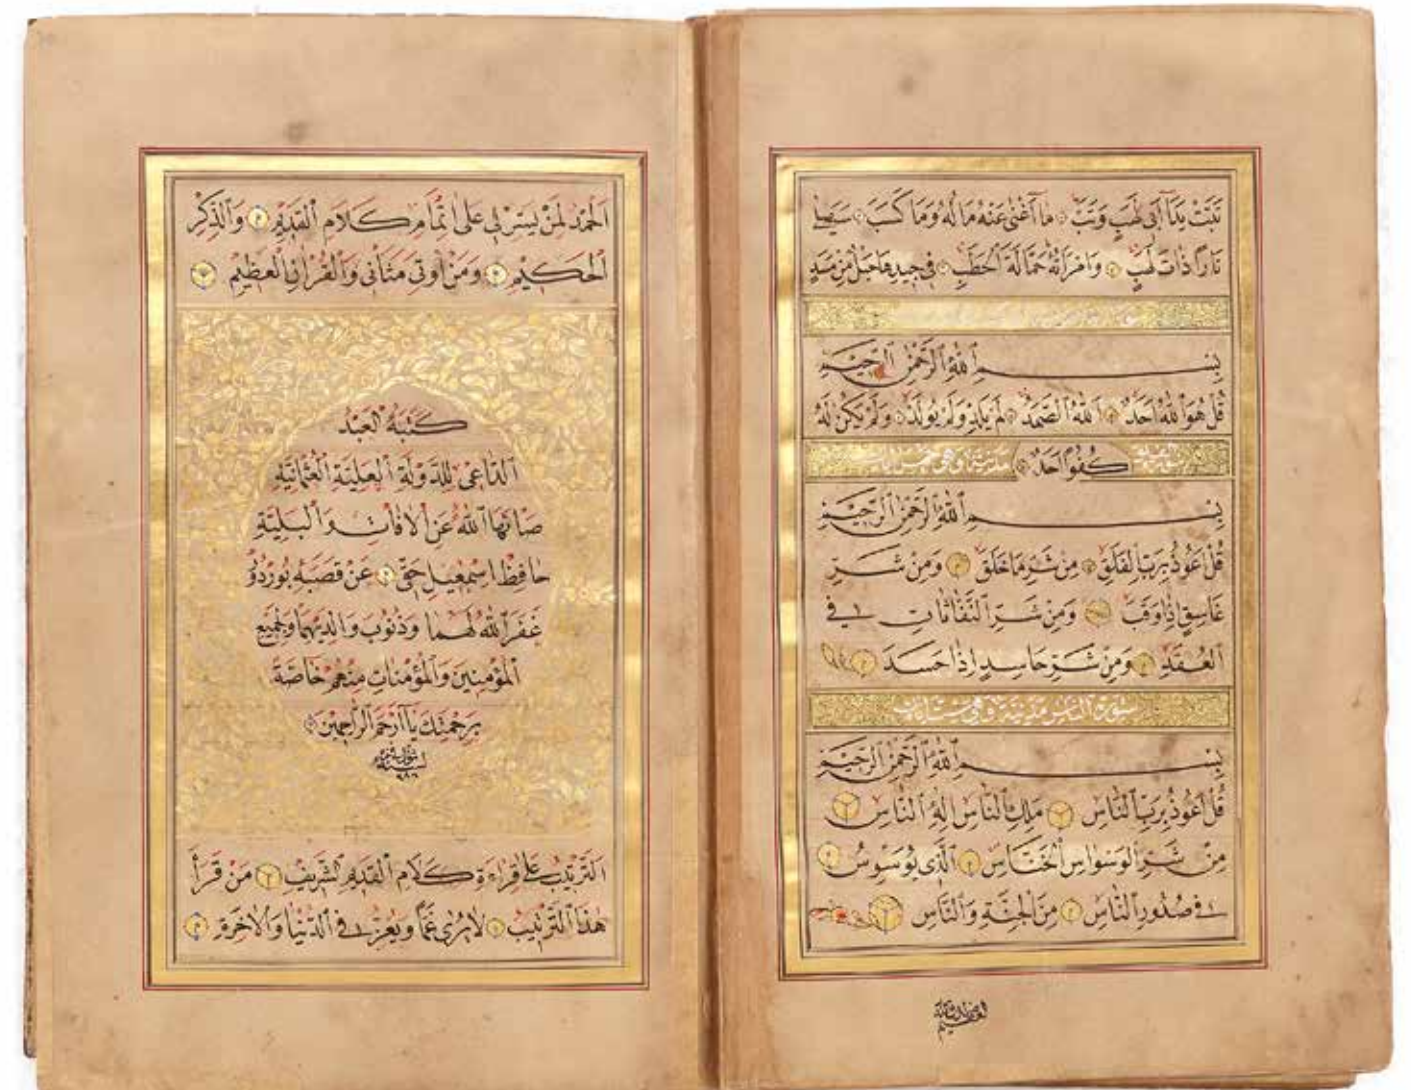 تَبَّتْ يَدَا اَبى لَهَبٍ وَتَبَّ مَا اَغْنٰى عَنْهُ مَالُهُ وَمَا كَسَبَ سَيَصْلٰى
نَاراً ذَاتَ لَهَبٍ وَامْرَاَتُهُ حَمَّالَةَ الْحَطَبِ فى جيدِهَا حَبْلٌ مِنْ مَسَدٍ
بِسْمِ اللّٰهِ الرَّحْمٰنِ الرَّحيمِ
قُلْ هُوَ اللّٰهُ اَحَدٌ اَللّٰهُ الصَّمَدُ لَمْ يَلِدْ وَلَمْ يُولَدْ وَلَمْ يَكُنْ لَهُ
كُفُوًا اَحَدٌ مدنية وهي خمس ايات
بِسْمِ اللّٰهِ الرَّحْمٰنِ الرَّحيمِ
قُلْ اَعُوذُ بِرَبِّ الْفَلَقِ مِنْ شَرِّ مَا خَلَقَ وَمِنْ شَرِّ
غَاسِقٍ اِذَا وَقَبَ وَمِنْ شَرِّ النَّفَّاثَاتِ فِى
الْعُقَدِ وَمِنْ شَرِّ حَاسِدٍ اِذَا حَسَدَ
سورة الناس مدنية وهي ست ايات
بِسْمِ اللّٰهِ الرَّحْمٰنِ الرَّحيمِ
قُلْ اَعُوذُ بِرَبِّ النَّاسِ مَلِكِ النَّاسِ اِلٰهِ النَّاسِ
مِنْ شَرِّ الْوَسْوَاسِ الْخَنَّاسِ اَلَّذى يُوَسْوِسُ
فى صُدُورِ النَّاسِ مِنَ الْجِنَّةِ وَالنَّاسِ
اَلْحَمْدُ لِمَنْ يَسَّرَ لى عَلٰى اِتْمَامِ كَلَامِ الْقَديمِ وَالذِّكْرِ
الْحَكيمِ وَمَنْ اُوتِىَ مَثَانى وَالْقُرْاٰنِ الْعَظيمِ
كَتَبَهُ الْعَبْدُ
الدَّاعى لِلدَّوْلَةِ الْعَلِيَّةِ الْعُثْمَانِيَّةِ
صَانَهَا اللّٰهُ عَنِ الْاٰفَاتِ وَالْبَلِيَّةِ
حافظ اسمعيل حقى عَنْ قَصَبَهِ بُورْدُوْ
غَفَرَ اللّٰهُ لَهُمَا وَذُنُوبَ وَالِدَيْهِمَا وَلِجَميعِ
الْمُؤْمِنينَ وَالْمُؤْمِنَاتِ مِنْهُمْ خَاصَّةً
بِرَحْمَتِكَ يَا اَرْحَمَ الرَّاحِمينَ
اَلتَّرْتيبُ عَلٰى قِرَاءَةِ كَلَامِ الْقَديمِ الشَّريفِ مَنْ قَرَأَ
هٰذَا التَّرْتيبَ لَا يُرٰى غَمًّا وَيُعَزُّ فِى الدُّنْيَا وَالْاٰخِرَةِ